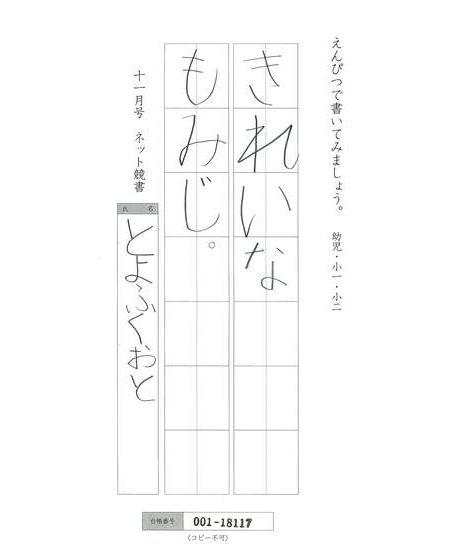 えんぴつで書いてみましょう。 幼児・小一・小二
きれいな
もみじ。
十一月号 ネット競書
氏名
とよふくおと
台帳番号 001-18117
(コピー不可)